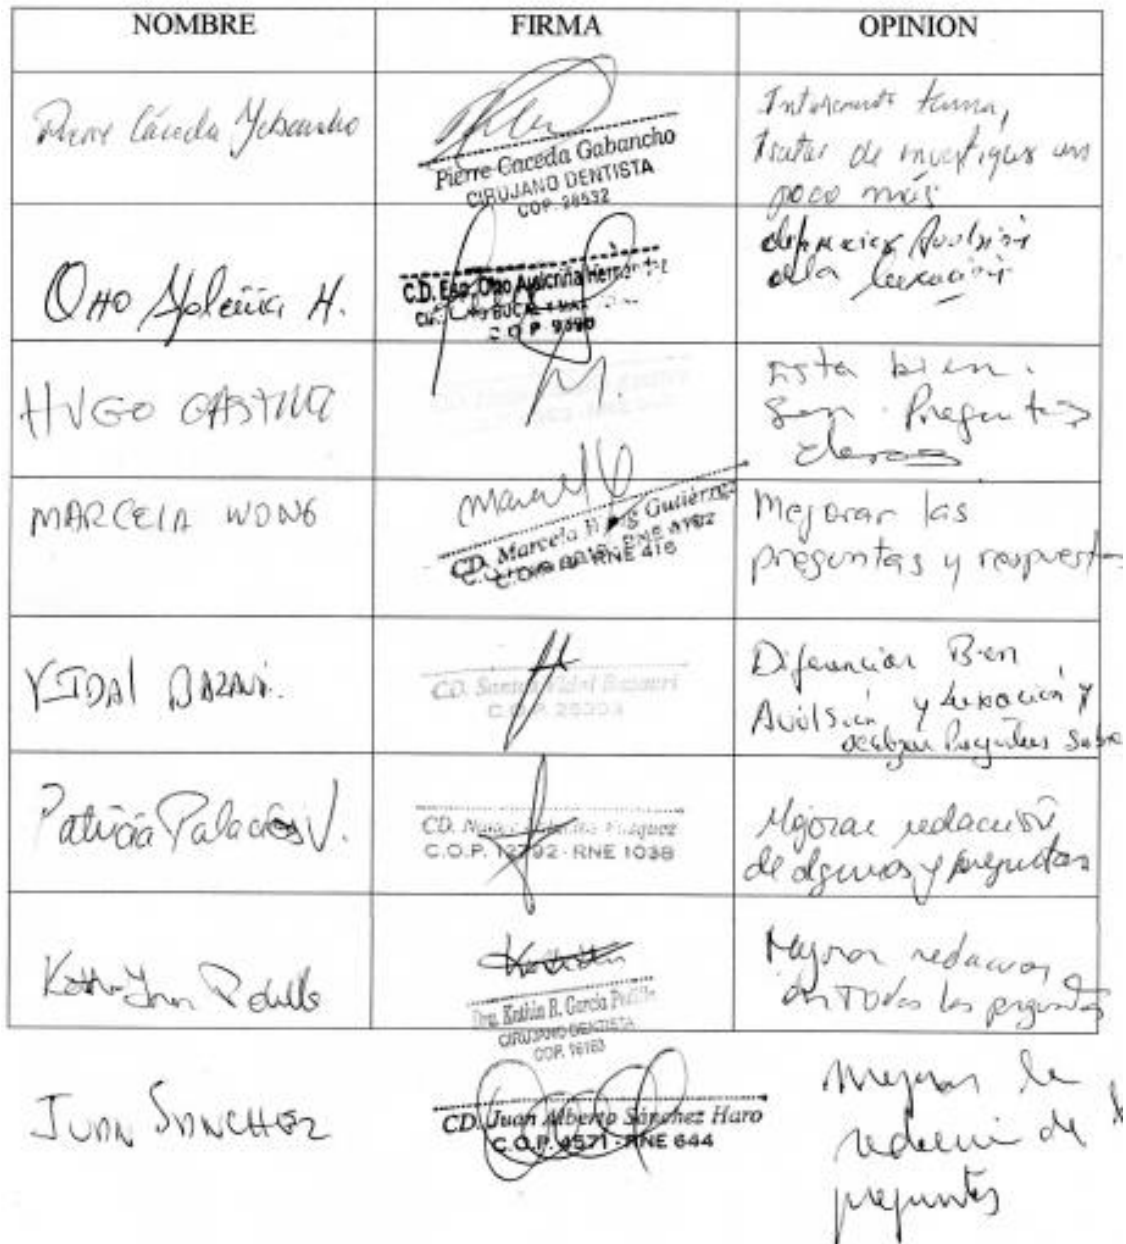 NOMBRE FIRMA OPINION
Pierre Cáceda Gabancho
Pierre Caceda Gabancho
CIRUJANO DENTISTA
COP. 28532
tema,
tratar de investigar un
poco más
Otto H.
C.D. Esp. Otto
C.O.P. 9390
Avulsión
de la luxación
HUGO
M.
Esta bien.
Son Preguntas
claras
MARCELA WONG
CD. Marcela Gutiérrez
RNE 416
Mejorar las
preguntas y respuestas
VIDAL BAZAURI.
CD. Santos Vidal Bazauri
C.O.P. 25303
Diferenciar Bien
Avulsión y luxación y
realizar Preguntas Sobre
Patricia Palacios V.
CD. Vasquez
C.O.P. 12792 - RNE 1038
Mejorar redacción
de algunas preguntas
Padilla
Dra. Kathia R. García Padilla
CIRUJANO DENTISTA
COP. 16163
Mejorar redaccion
en TODAS las preguntas
JUAN SANCHEZ
CD. Juan Alberto Sánchez Haro
C.O.P. 4571 - RNE 644
Mejorar la
redacción de
preguntas